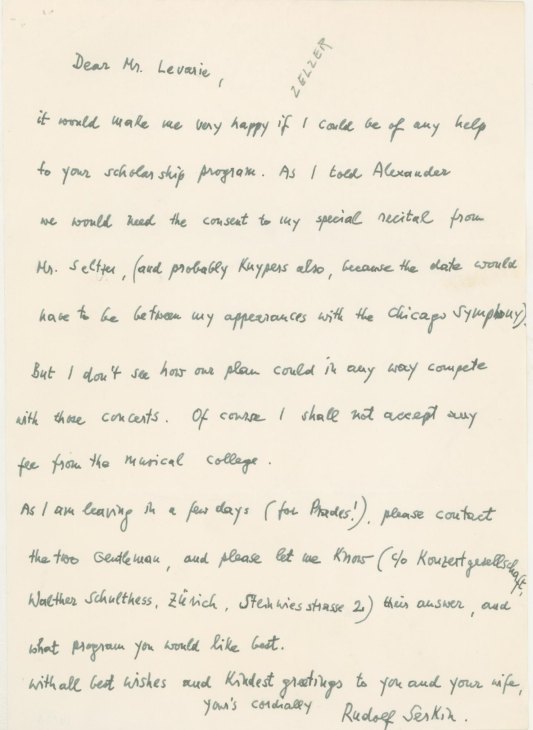 ZELZER
Dear Mr. Levarie,
it would make me very happy if I could be of any help
to your scholarship program. As I told Alexander
we would need the consent to my special recital from
Mr. Seltzer, (and probably Kuypers also, because the date would
have to be between my appearances with the Chicago Symphony).
But I don't see how our plan could in any way compete
with those concerts. Of course I shall not accept any
fee from the musical college.
As I am leaving in a few days (for Prades!), please contact
the two Gentleman, and please let me know (c/o Konzertgesellschaft,
Walther Schulthess, Zürich, Steinwiesstrasse 2) their answer, and
what program you would like best.
With all best wishes and kindest greetings to you and your wife,
your's cordially
Rudolf Serkin.